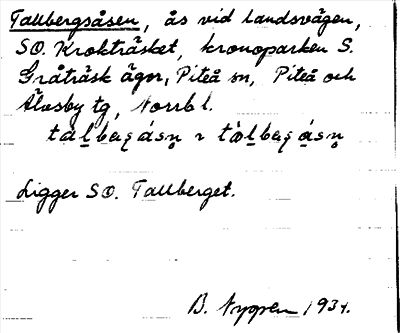 Tallbergsåsen, ås vid landsvägen,
SO. Krokträsket, kronoparken S.
Gråträsk ägor, Piteå sn, Piteå och
Älvsby tg, Norrb l.
Ligger SO. Tallberget.
B. Nygren 1934.